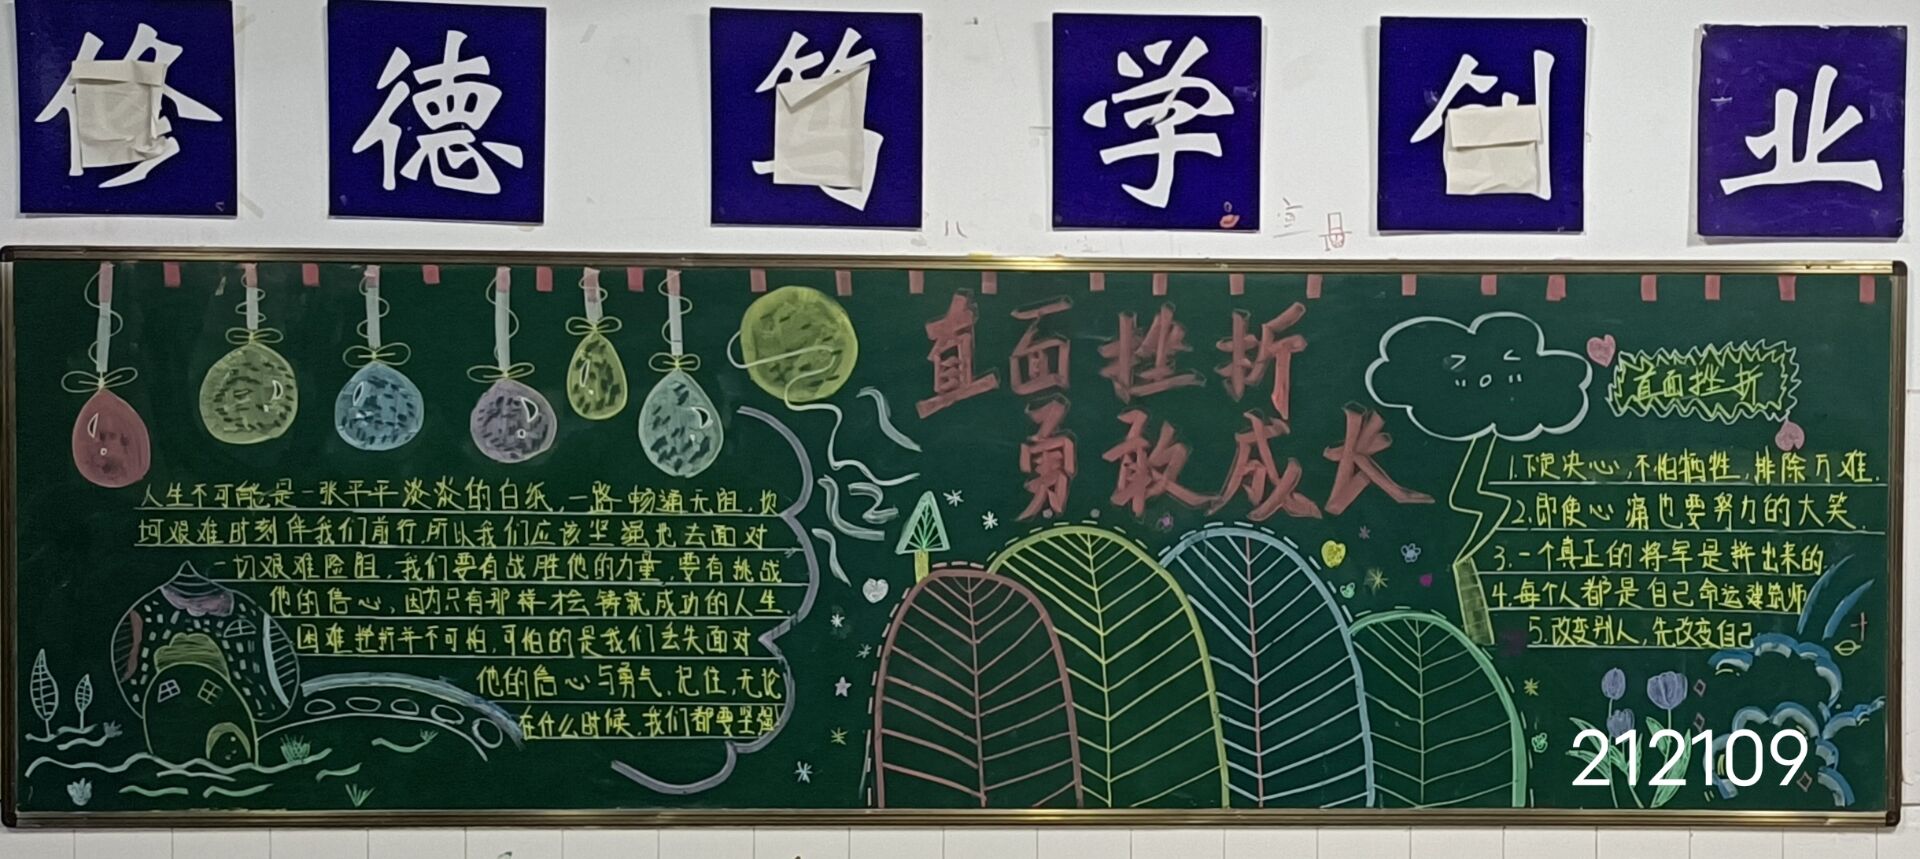 修德笃学创业
直面挫折
勇敢成长
人生不可能是一张平平淡淡的白纸，一路畅通无阻，坎
坷艰难时刻伴我们前行，所以我们应该坚强地去面对
一切艰难险阻，我们要有战胜他的力量，要有挑战
他的信心，因为只有那样才会铸就成功的人生
困难挫折并不可怕，可怕的是我们丢失面对
他的信心与勇气，记住，无论
在什么时候，我们都要坚强
直面挫折
1.下定决心，不怕牺牲，排除万难.
2.即使心痛也要努力的大笑.
3.一个真正的将军是拼出来的
4.每个人都是自己命运建筑师
5.改变别人，先改变自己
212109